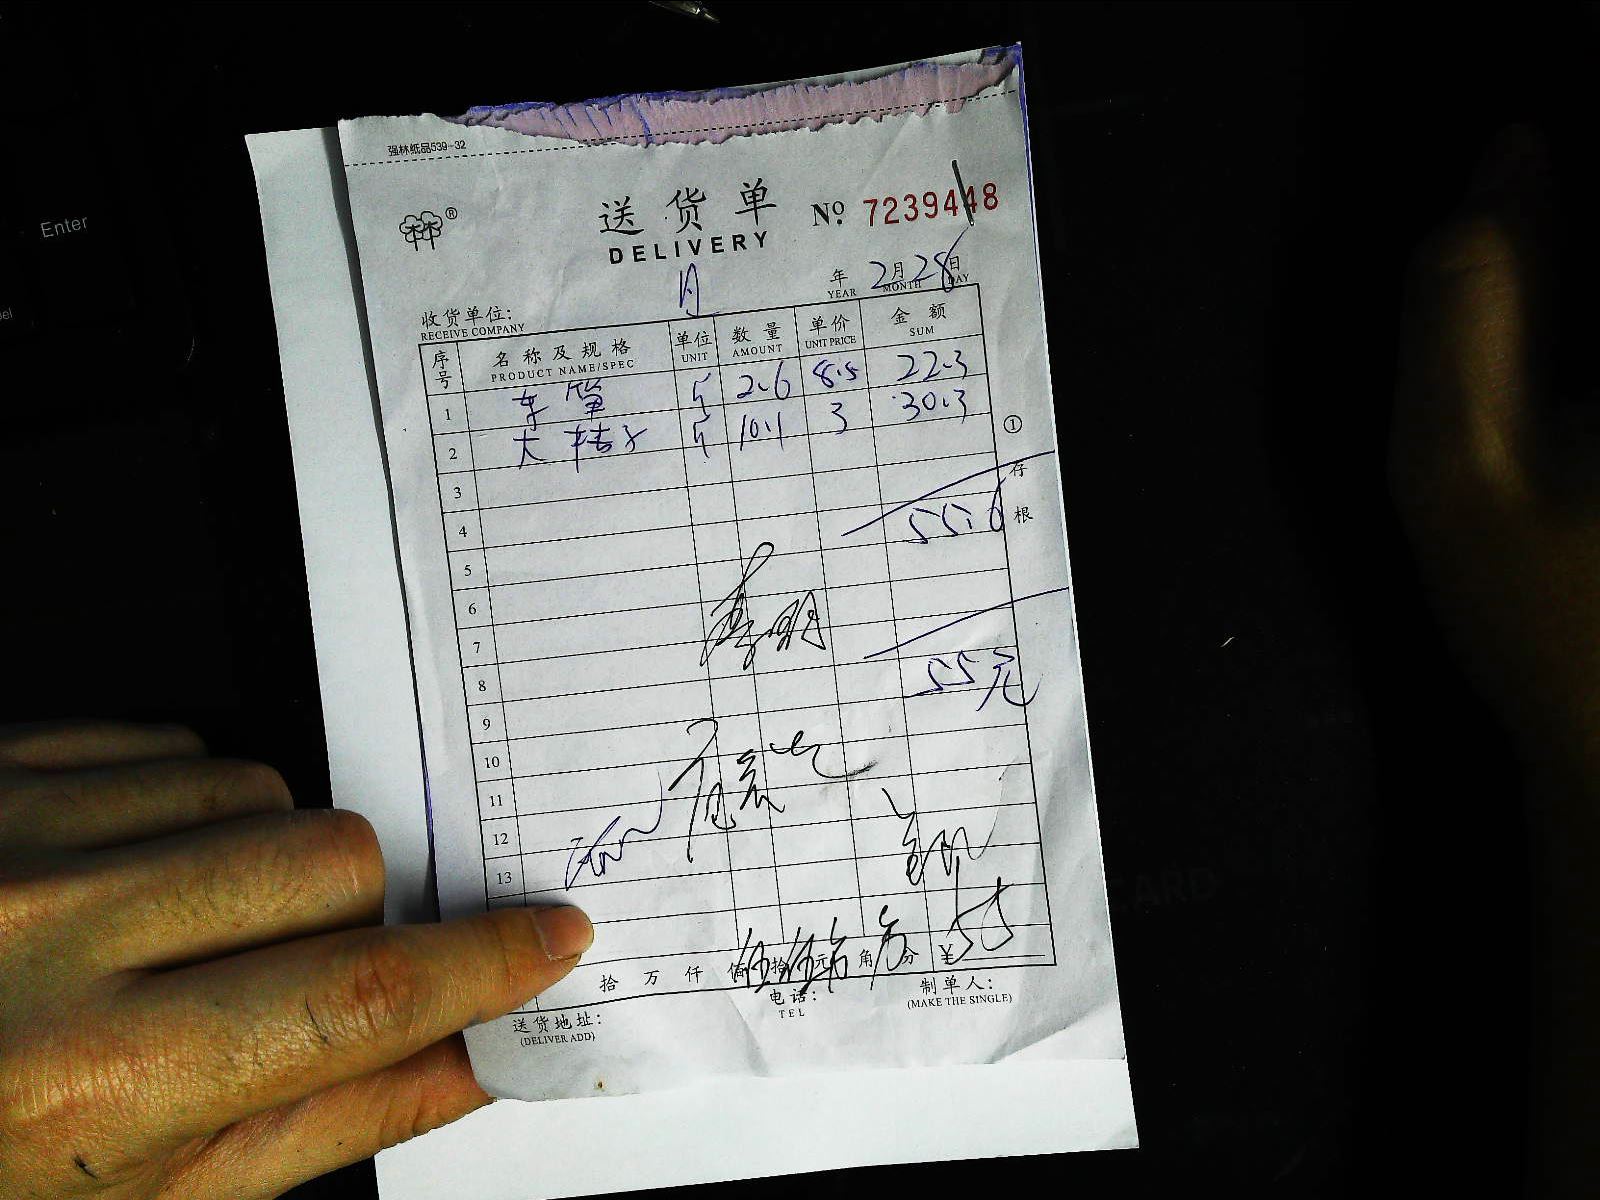 Enter
强林纸品539-32
林林®
送货单 No. 7239448
DELIVERY
年 2月28日
YEAR MONTH DAY
收货单位:
RECEIVE COMPANY
序号 名称及规格 单位 数量 单价 金额
PRODUCT NAME/SPEC UNIT AMOUNT UNIT PRICE SUM
1 冬笋 斤 2.6 8.5 22.3
2 大桔子 斤 10.1 3 30.3
①
存
3
4 55.6 根
5
6
7
8 55元
9
10
11
12
13
拾 万 仟 佰 伍 拾 伍 元 角 分 ¥55
送货地址: 电话: 制单人:
(DELIVER ADD) TEL (MAKE THE SINGLE)